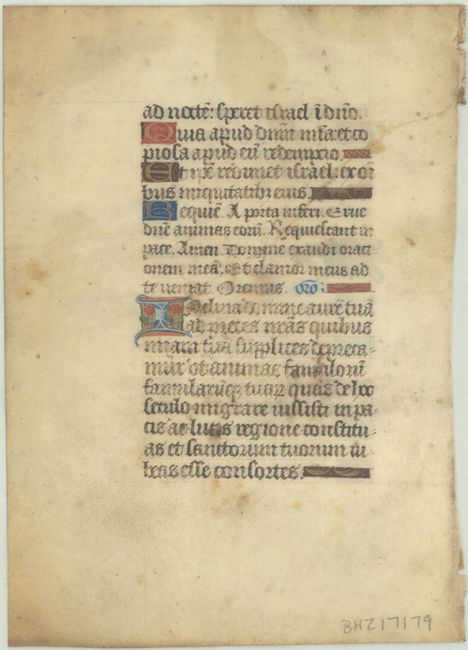 ad noctē: speret israel ī dño.
Quia apud dñm mīa: et co
piosa apud eū redemptio.
Et ipse redimet israel: ex oī
bus iniquitatibꝫ eius.
Requiē. A porta inferi. Erue
dñe animas eorū. Requiescant in
pace. Amen. Domine exaudi orati
onem meā. Et clamor meus ad
te veniat. Oremus. oro:
Inclina domine aurē tuā
ad preces nr̃as quibus
miam tuā supplices depreca-
mur vt animas famulorū
famularūqꝫ tuarꝝ quas de hoc
seculo migrare iussisti in pa-
cis ac lucis regione constitu-
as et sanctorum tuorum iu-
beas esse consortes.
BHZ17179